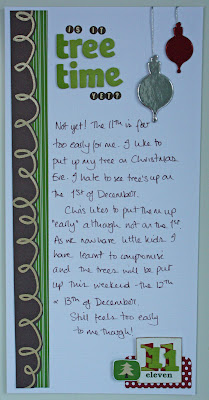 IS IT
tree
time
YET?
Not yet! The 11th is far
too early for me. I like to
put up my tree on Christmas
Eve. I hate to see tree's up on
the 1st of December.
Chris likes to put them up
"early" although not on the 1st.
As we now have little kids I
have learnt to compromise
and the trees will be put
up this weekend - the 12th
& 13th of December.
Still feels too early
to me though!
11
eleven